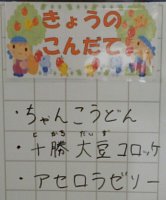 きょうの
こんだて
・ちゃんこうどん
とかちだいず
・十勝大豆コロッケ
・アセロラゼリー